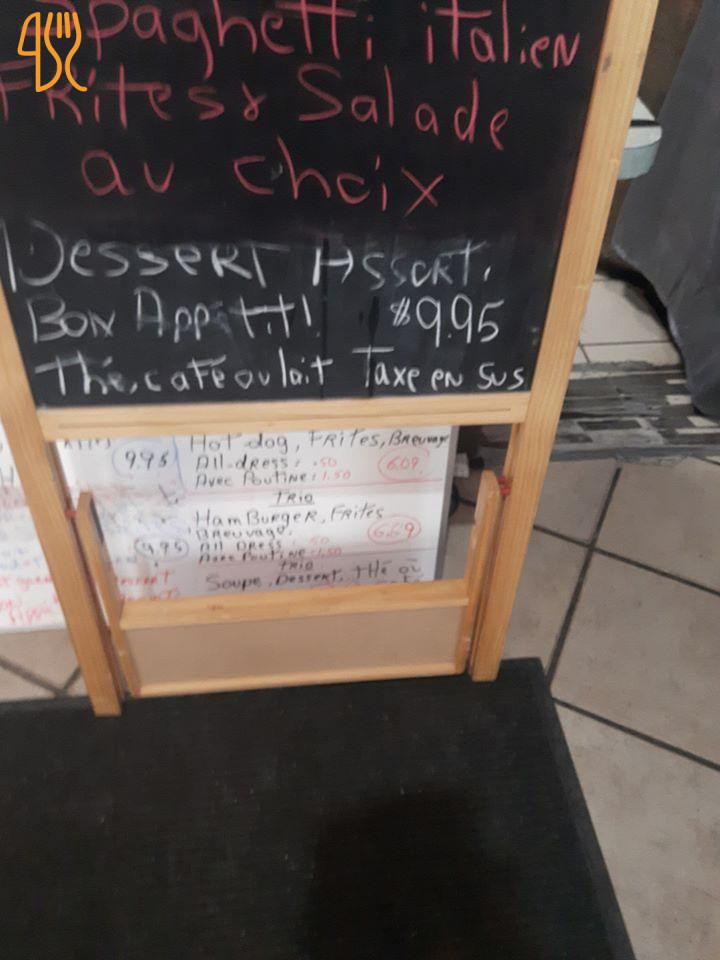 Spaghetti italien
Frites & Salade
au choix
Dessert Assort.
Bon Appétit! $9.95
Thé, café ou lait Taxe en sus
Hot-dog, Frites, Breuvage
9.95 All-dress: .50 6.09
Avec Poutine: 1.50
Trio
HamBurger, Frites
Breuvage. 6.69
9.95 All Dress: .50
Avec Poutine: 1.50
Trio
Soupe, Dessert, thé ou